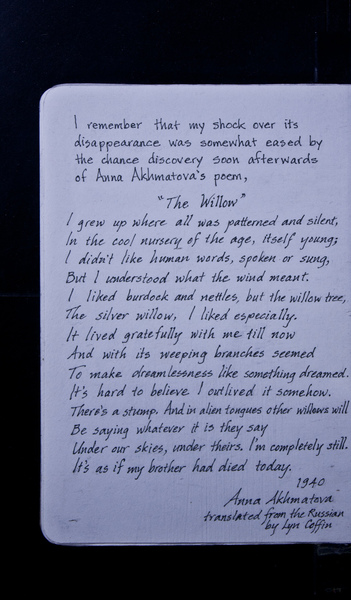 I remember that my shock over its
disappearance was somewhat eased by
the chance discovery soon afterwards
of Anna Akhmatova's poem,
"The Willow"
I grew up where all was patterned and silent,
In the cool nursery of the age, itself young;
I didn't like human words, spoken or sung,
But I understood what the wind meant.
I liked burdock and nettles, but the willow tree,
The silver willow, I liked especially.
It lived gratefully with me till now
And with its weeping branches seemed
To make dreamlessness like something dreamed.
It's hard to believe I outlived it somehow.
There's a stump. And in alien tongues other willows will
Be saying whatever it is they say
Under our skies, under theirs. I'm completely still.
It's as if my brother had died today.
1940
Anna Akhmatova
translated from the Russian
by Lyn Coffin